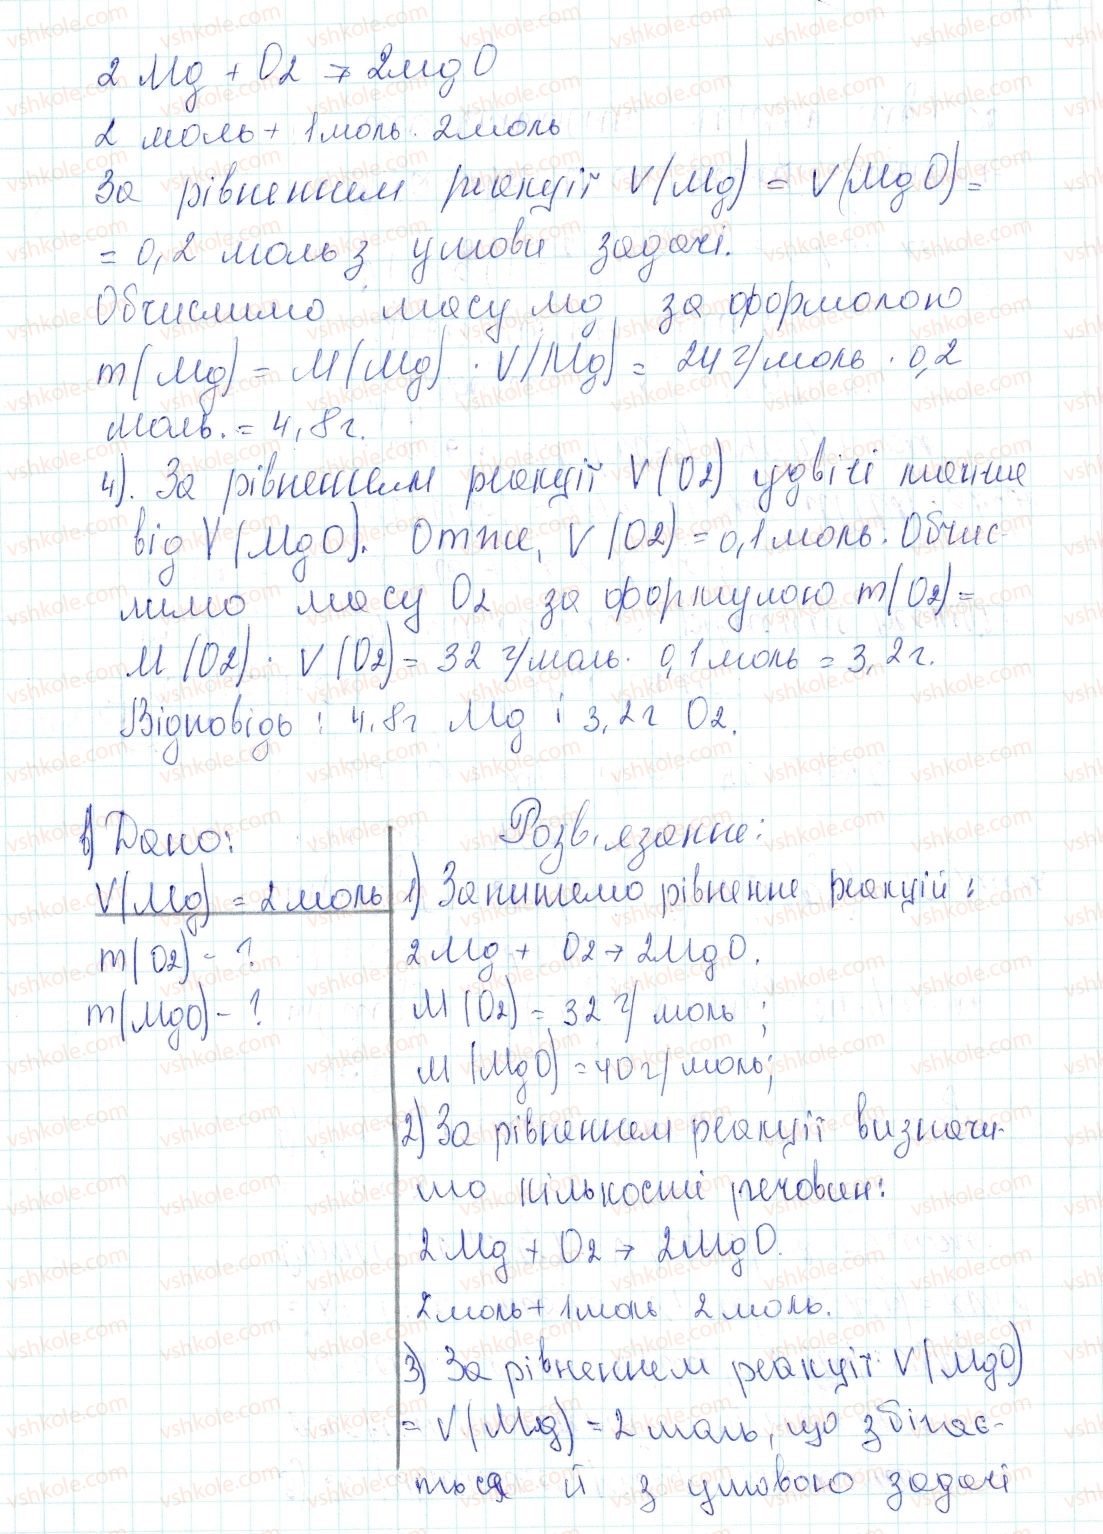 2 Mg + O2 → 2MgO
2 моль + 1 моль 2 моль
За рівненням реакції V(Mg) = V(MgO) =
= 0,2 моль з умови задачі.
Обчислимо масу Mg за формолою
m(Mg) = M(Mg) · V(Mg) = 24 г/моль · 0,2
моль. = 4,8 г.
4). За рівненням реакції V(O2) удвічі менше
від V(MgO). Отже, V(O2) = 0,1 моль. Обчис-
лимо масу O2 за формулою m(O2) =
M(O2) · V(O2) = 32 г/моль · 0,1 моль = 3,2 г.
Відповідь: 4.8г Mg і 3,2г O2.
в) Дано:
V(Mg) = 2 моль
m(O2) - ?
m(MgO) - ?
Розв,язання:
1) Запишемо рівнення реакцій:
2Mg + O2 → 2MgO.
M(O2) = 32 г/моль;
M(MgO) = 40 г/моль;
2) За рівненнем реакції визначи-
мо кількості речовин:
2Mg + O2 → 2MgO.
2 моль + 1 моль 2 моль.
3) За рівненнем реакції V(MgO)
= V(Mg) = 2 моль, що збігає-
ться й з умовою задачі